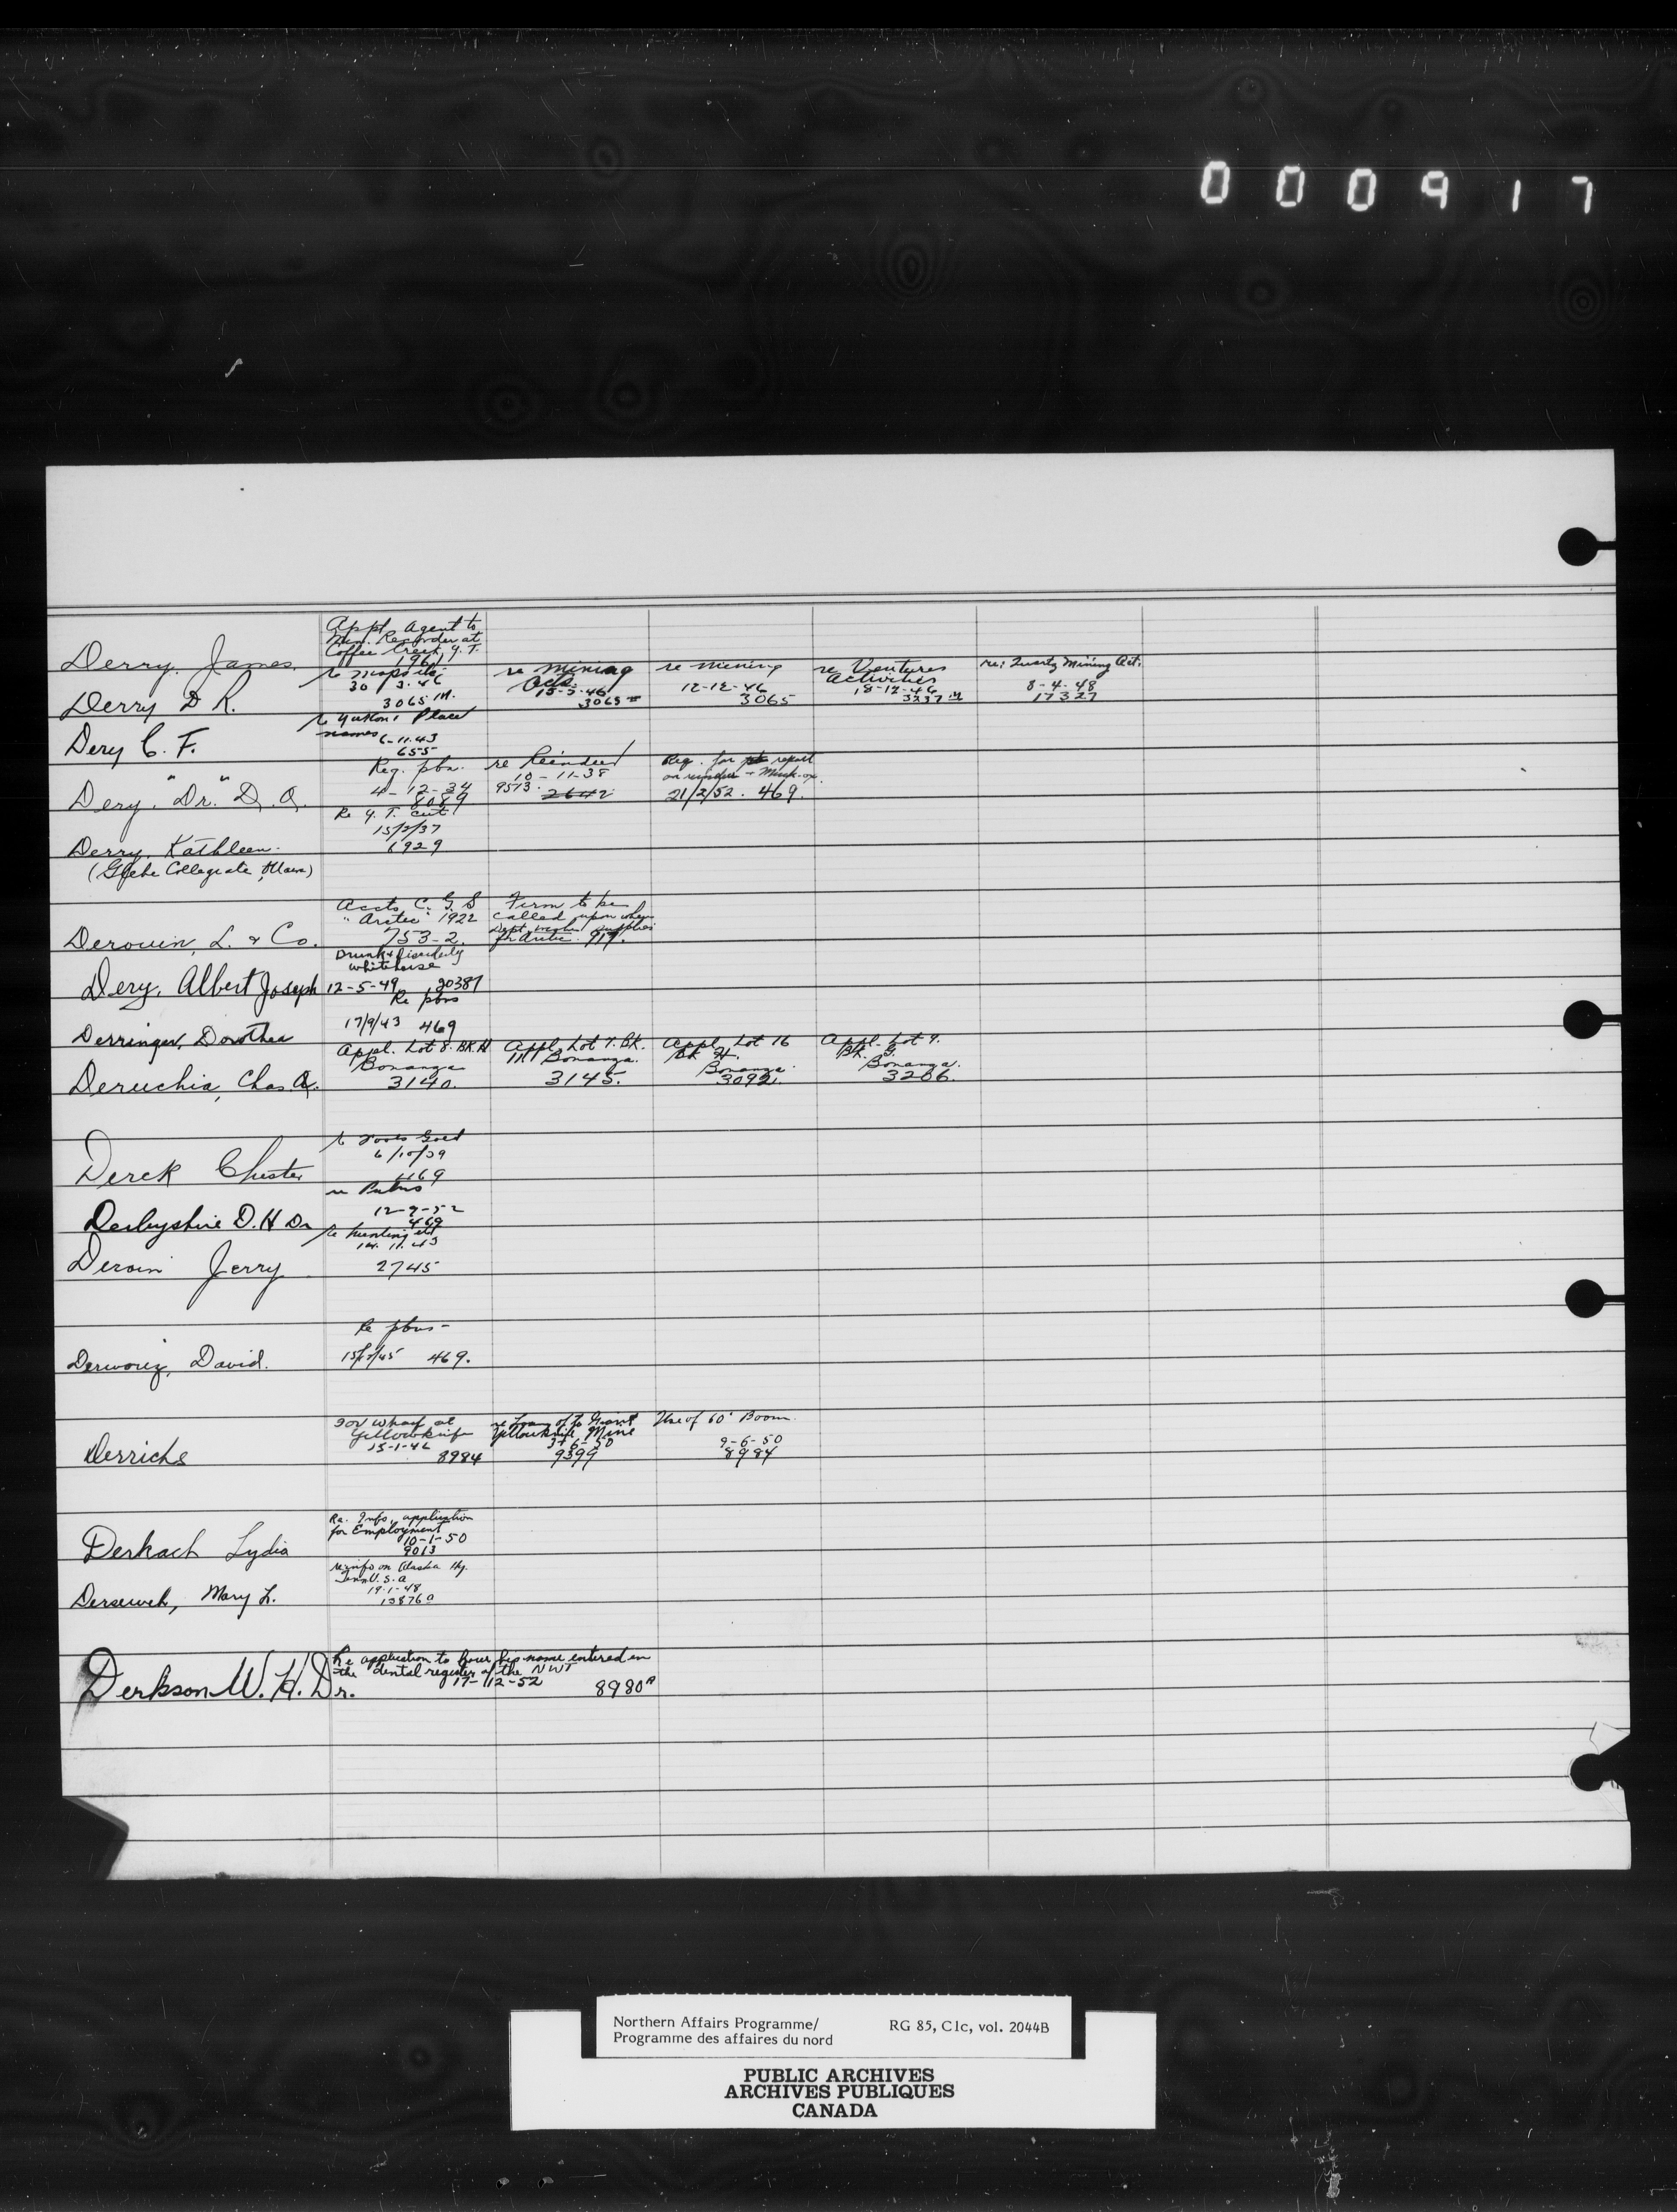 000917
Derry, James.
Appt. Agent to
Min. Recorder at
Coffee Creek, Y.T.
1961
Derry D R.
re maps etc
30/3.46
3065 M.
re Mining
Acts.
15-5-46
3065
re Mining
12-12-46
3065
re Ventures
Activities
18-12-46
3237 M
re: Quartz Mining Act.
8-4-48
17327
Dery C. F.
re Yukon Place
names
6-11.43
655
Dery, "Dr." D. A.
Reg. pbn.
4-12-34
8089
re Reindeer
10-11-38
9513. 2642
Req. for report
on reindeer + Musk-ox.
21/2/52. 469.
Derry, Kathleen.
(Glebe Collegiate, Ottawa)
Re Y.T. cut
15/2/37
6929
Derouin, L. & Co.
Accts C. G. S
"Arctic" 1922
753-2.
Firm to be
called upon when
Dept. wishes supplies
for Arctic. 917.
Dery, Albert Joseph
Drunk & disorderly
Whitehorse
12-5-49 20387
Derringer, Dorothea
Re pbns
17/9/43 469
Deruchia, Chas. A.
Appl. Lot 8. BK. H
Bonanza
3140.
Appl. Lot 7. BK.
Bonanza.
3145.
Appl. Lot 16
BK H.
Bonanza.
3092.
Appl. Lot 9.
BK. G.
Bonanza.
3206.
Derck Chester
re Fools Gold
6/10/39
1169
Derbyshire D. H Dr
re Pubns
12-9-52
469
Deroin Jerry
re hunting etc
14. 11. 43
2745
Derworiz, David.
Re pbns-
469.
Derricks
For wharf at
Yellowknife
15-1-46
8984
re Loan of to Giant
Yellowknife Mine
3+6-50
9399
Use of 60' Boom.
9-6-50
8984
Derkach Lydia
Re. Info, application
for Employment
10-1-50
9013
Derseweh, Mary L.
re info on Alaska Hy.
U.S.A
19-1-48
Derkson W. H. Dr.
Re application to have his name entered in
the dental register of the NWT
17-12-52 8980A
Northern Affairs Programme/
Programme des affaires du nord
RG 85, C1c, vol. 2044B
PUBLIC ARCHIVES
ARCHIVES PUBLIQUES
CANADA